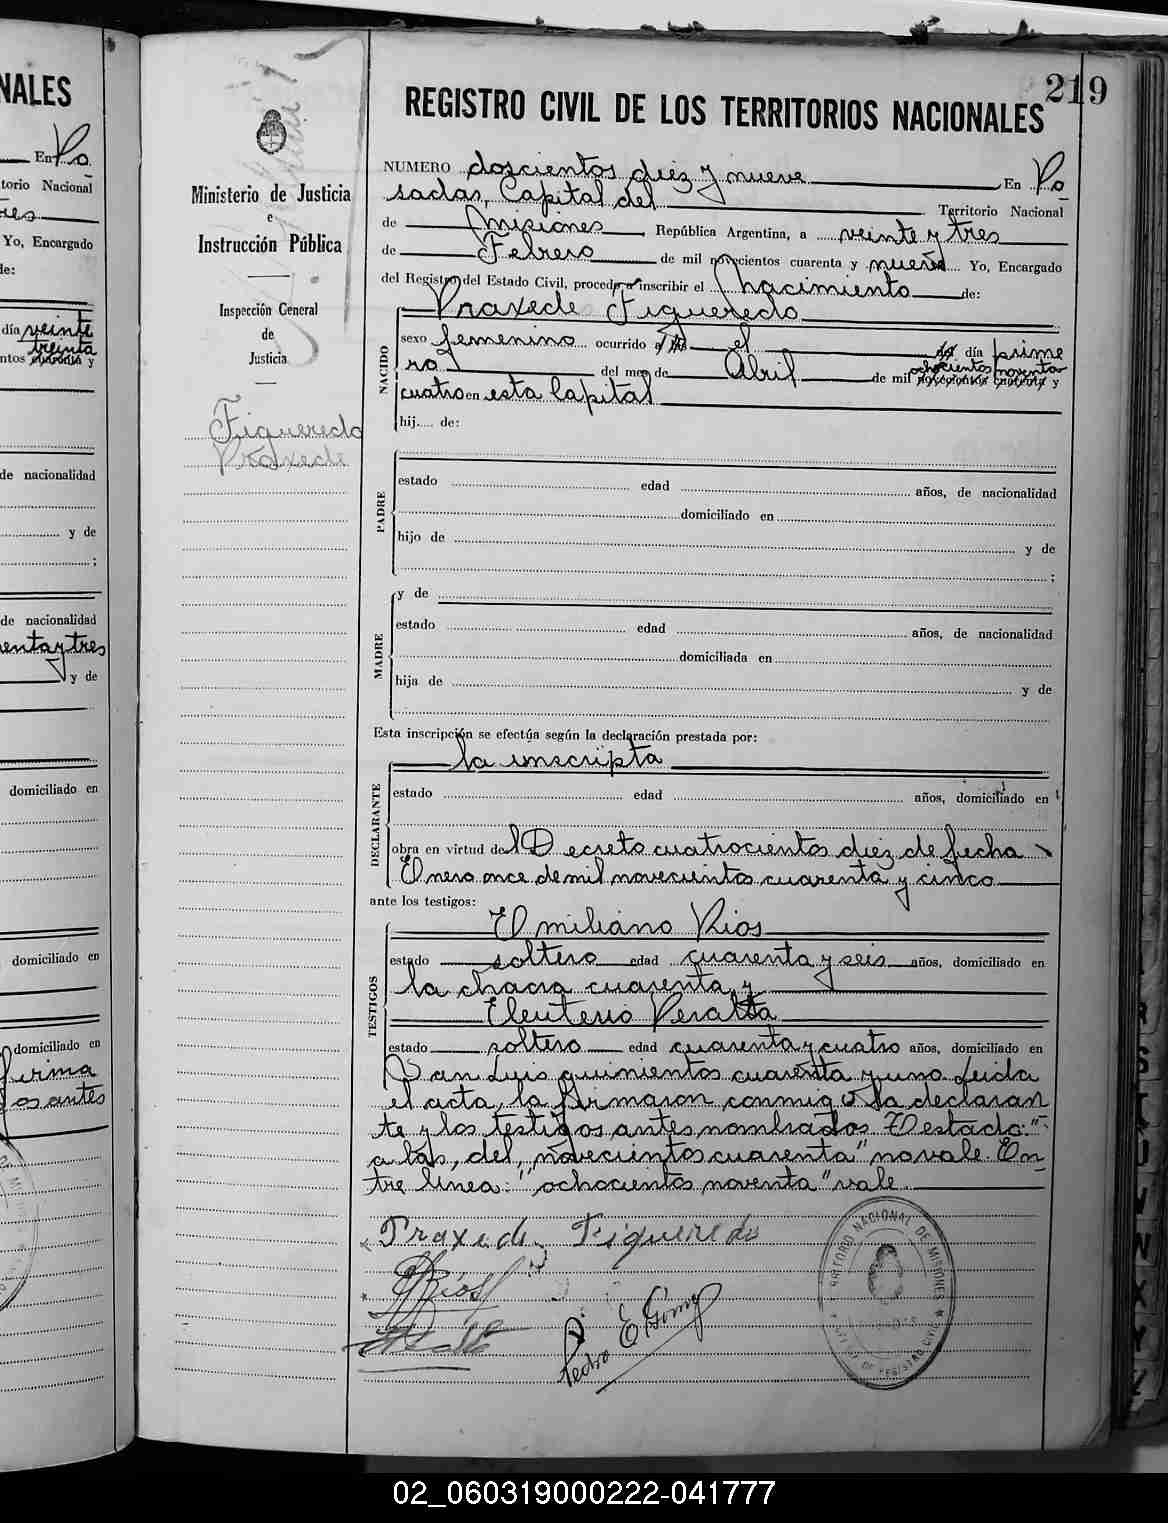 NALES
En Po
torio Nacional
Yo, Encargado
de:
día veinte
treinta
ntos y
de nacionalidad
y de
;
de nacionalidad
enta y tres
y de
domiciliado en
domiciliado en
domiciliado en
firma
os antes
Ministerio de Justicia
e
Instrucción Pública
Inspección General
de
Justicia
Figueredo
Praxede
219
REGISTRO CIVIL DE LOS TERRITORIOS NACIONALES
NUMERO doscientos diez y nueve En Po
sadas, Capital del Territorio Nacional
de Misiones, República Argentina, a veinte y tres
de Febrero de mil novecientos cuarenta y nueve Yo, Encargado
del Registro del Estado Civil, procedo a inscribir el nacimiento de:
Praxede Figueredo
NACIDO
sexo femenino ocurrido el día prime
ochocientos noventa
ro del mes de Abril de mil novecientos cuarenta y
cuatro en esta Capital
hij..... de:
PADRE
estado edad años, de nacionalidad
domiciliado en
hijo de y de
;
MADRE
y de
estado edad años, de nacionalidad
domiciliada en
hija de y de
Esta inscripción se efectúa según la declaración prestada por:
DECLARANTE
la inscripta
estado edad años, domiciliado en
obra en virtud del Decreto cuatrocientos diez de fecha
Enero once de mil novecientos cuarenta y cinco
ante los testigos:
TESTIGOS
Emiliano Rios
estado soltero edad cuarenta y seis años, domiciliado en
la chacra cuarenta y
Eleuterio Peralta
estado soltero edad cuarenta y cuatro años, domiciliado en
San Luis quinientos cuarenta y uno Leida
el acta, la firmaron conmigo la declaran
te y los testigos antes nombrados Testado: "
a las, del, novecientos cuarenta" no vale. En
tre línea: "ochocientos noventa" vale.
Praxede Figueredo
ERios
Pedro E Gomez
TERRITORIO NACIONAL DE MISIONES
DE REGISTRO CIVIL
02_060319000222-041777